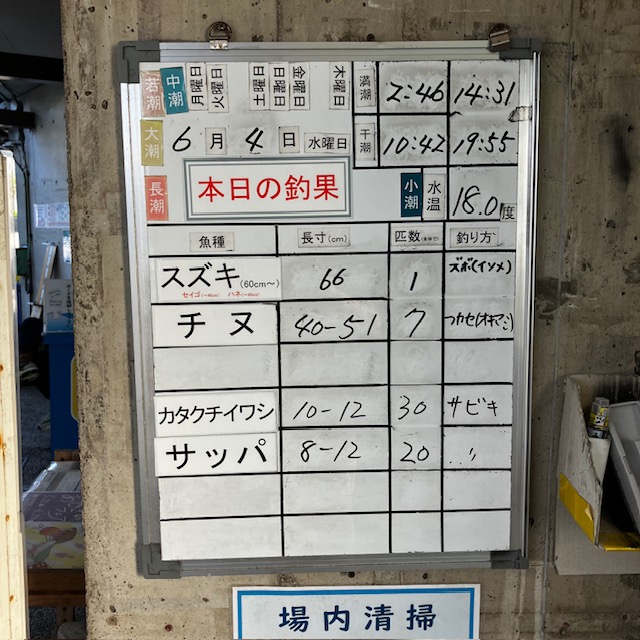 若潮 中潮 月曜日 火曜日 土曜日 日曜日 金曜日 木曜日 満潮 2:46 14:31
大潮 6月4日 水曜日 干潮 10:42 19:55
長潮 本日の釣果 小潮 水温 18.0度
魚種 長寸(cm) 匹数 釣り方
スズキ(60cm〜) 66 1 ズボ(イソメ)
セイゴ ハネ
チヌ 40-51 7
カタクチイワシ 10-12 30 サビキ
サッパ 8-12 20 〃
場内清掃